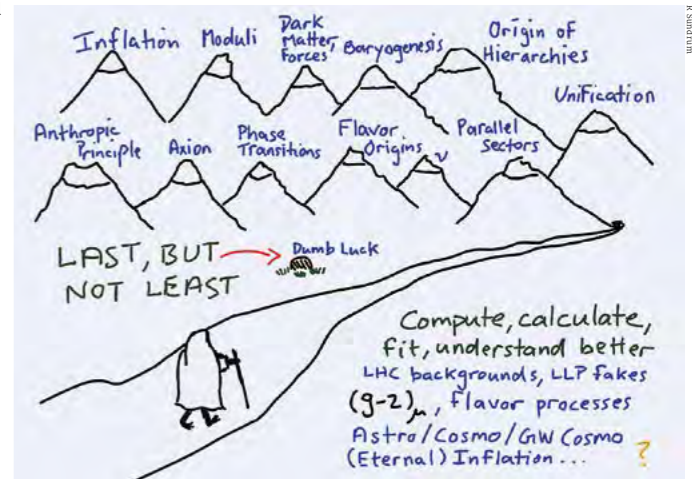 R Sundrum
Inflation
Moduli
Dark
Matter,
Forces
Baryogenesis
Origin of
Hierarchies
Unification
Anthropic
Principle
Axion
Phase
Transitions
Flavor
Origins
ν
Parallel
Sectors
LAST, BUT
NOT LEAST
Dumb Luck
Compute, calculate,
fit, understand better
LHC backgrounds, LLP fakes
(g-2)μ, flavor processes
Astro/Cosmo/GW Cosmo
(Eternal) Inflation... ?